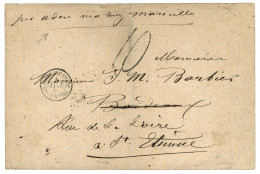 par aden via Suez Marseille
10
Monsieur
Monsieur J. M. Barbier
Bordeaux
Rue de la Loire
à St Etienne